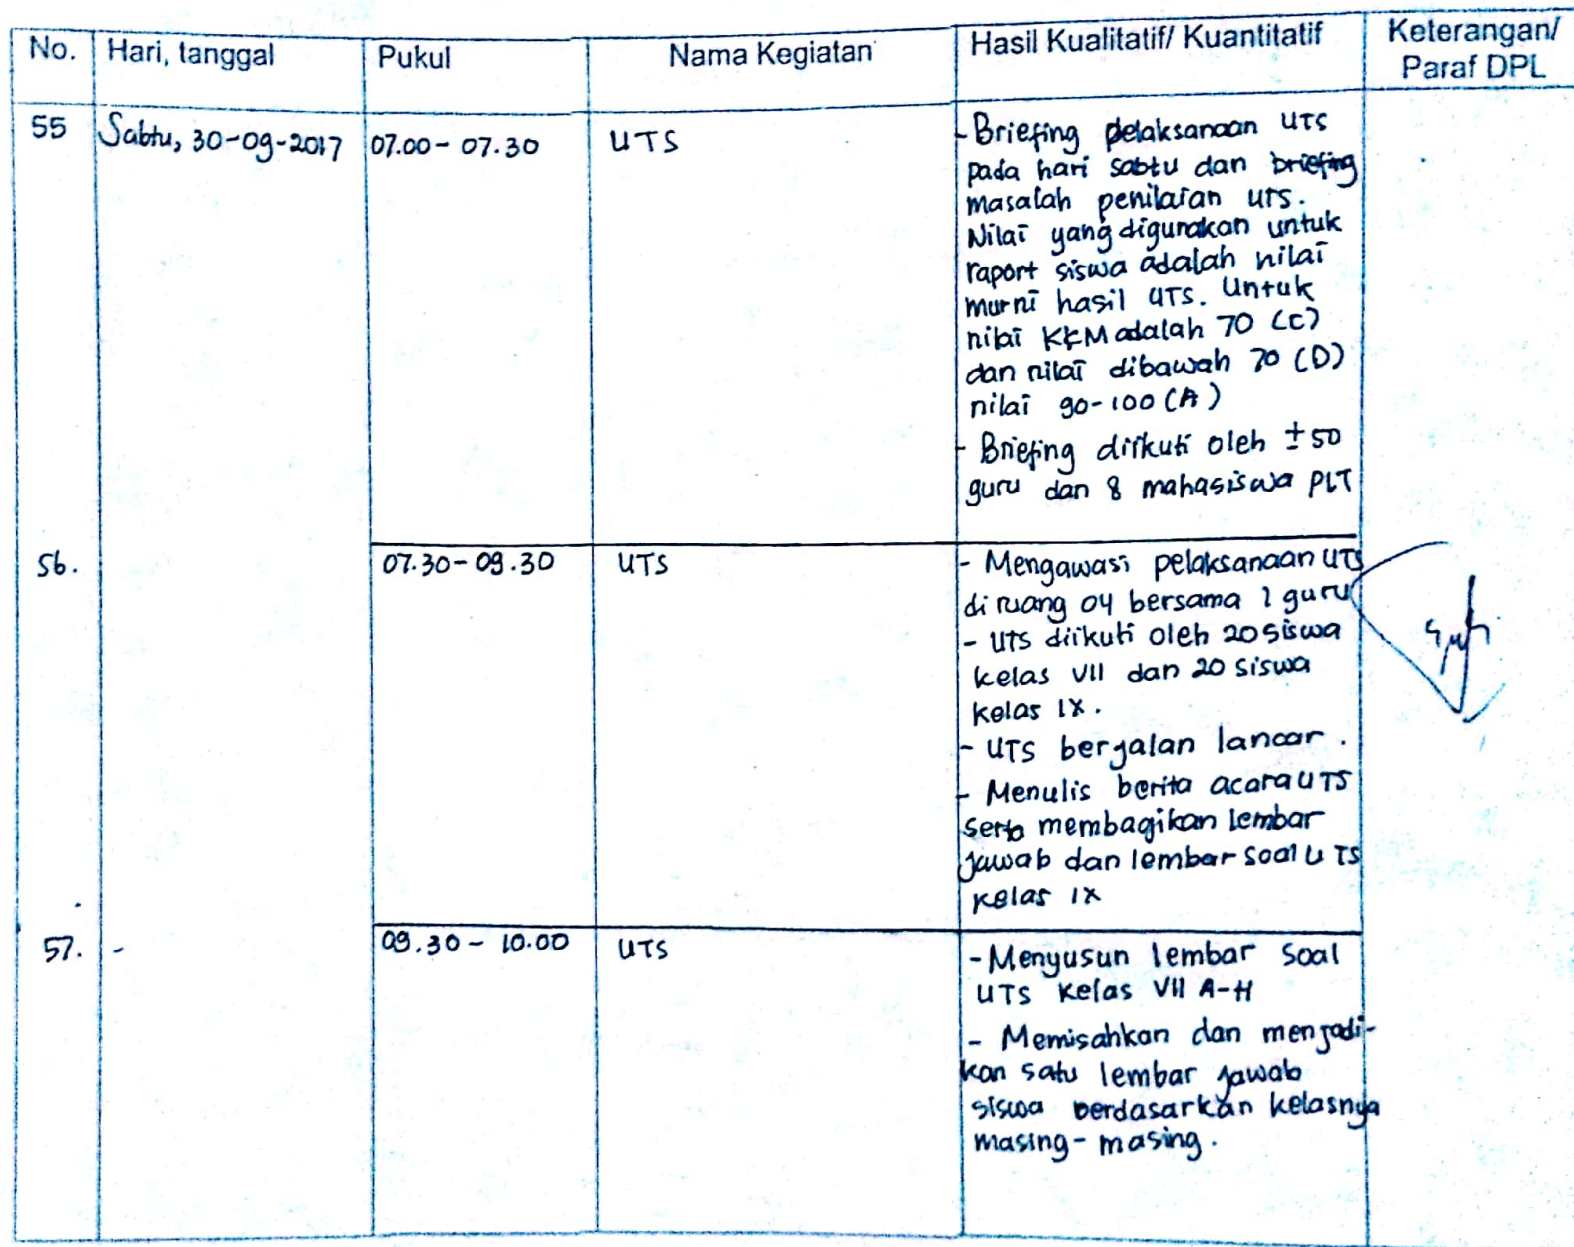 No. Hari, tanggal Pukul Nama Kegiatan Hasil Kualitatif/ Kuantitatif Keterangan/
Paraf DPL
55 Sabtu, 30-09-2017 07.00 - 07.30 UTS - Briefing pelaksanaan UTS
pada hari sabtu dan briefing
masalah penilaian UTS.
Nilai yang digunakan untuk
raport siswa adalah nilai
murni hasil UTS. Untuk
nilai KKM adalah 70 (C)
dan nilai dibawah 70 (D)
nilai 90-100 (A)
- Briefing diikuti oleh ±50
guru dan 8 mahasiswa PLT
56. 07.30 - 09.30 UTS - Mengawasi pelaksanaan UTS
di ruang 04 bersama 1 guru
- UTS diikuti oleh 20 siswa
kelas VII dan 20 siswa
kelas IX.
- UTS berjalan lancar.
- Menulis berita acara UTS
serta membagikan lembar
jawab dan lembar soal UTS
kelas IX
57. - 09.30 - 10.00 UTS - Menyusun lembar soal
UTS kelas VII A-H
- Memisahkan dan menjadi-
kan satu lembar jawab
siswa berdasarkan kelasnya
masing-masing.